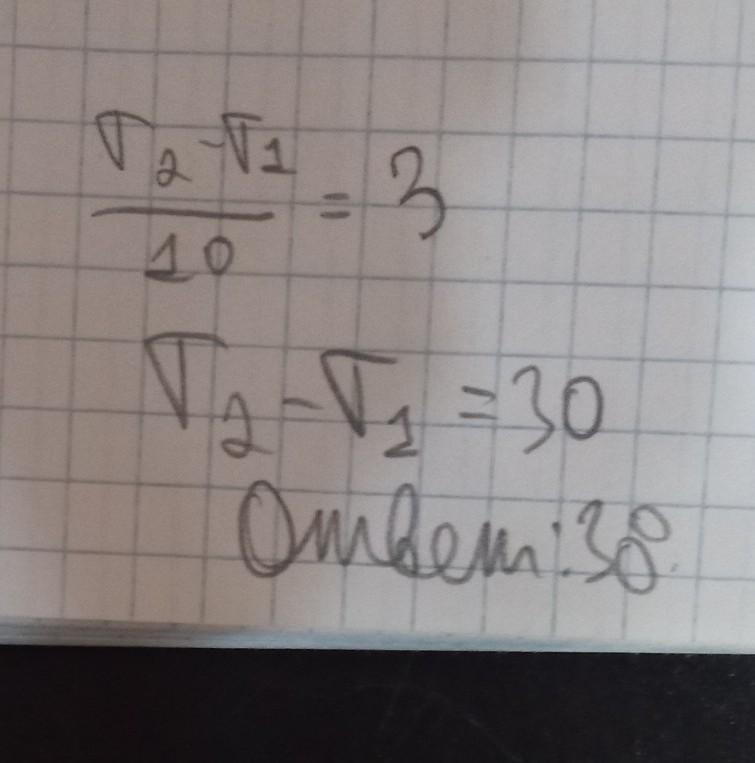 (T₂ - T₁)/10 = 3
T₂ - T₁ = 30
Ответ: 30.